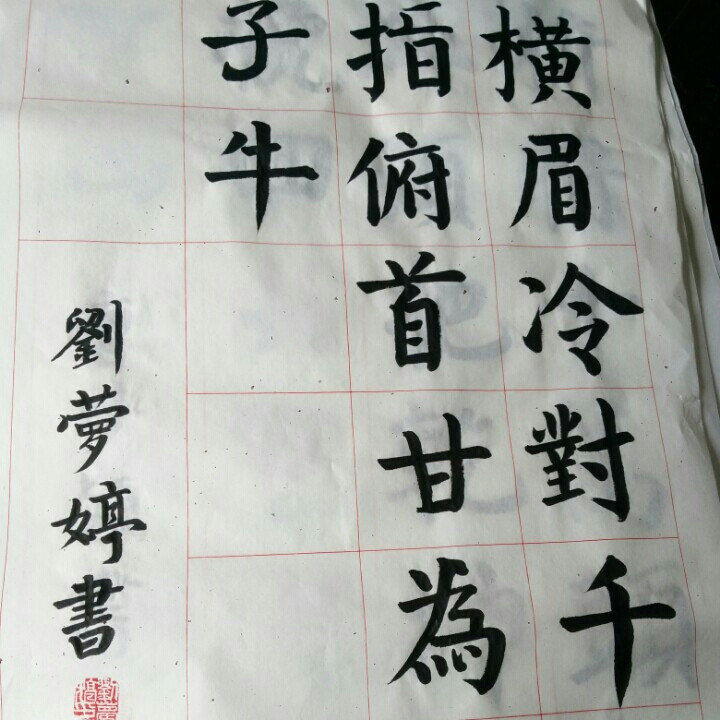 横眉冷對千
指俯首甘為
子牛
劉夢婷書